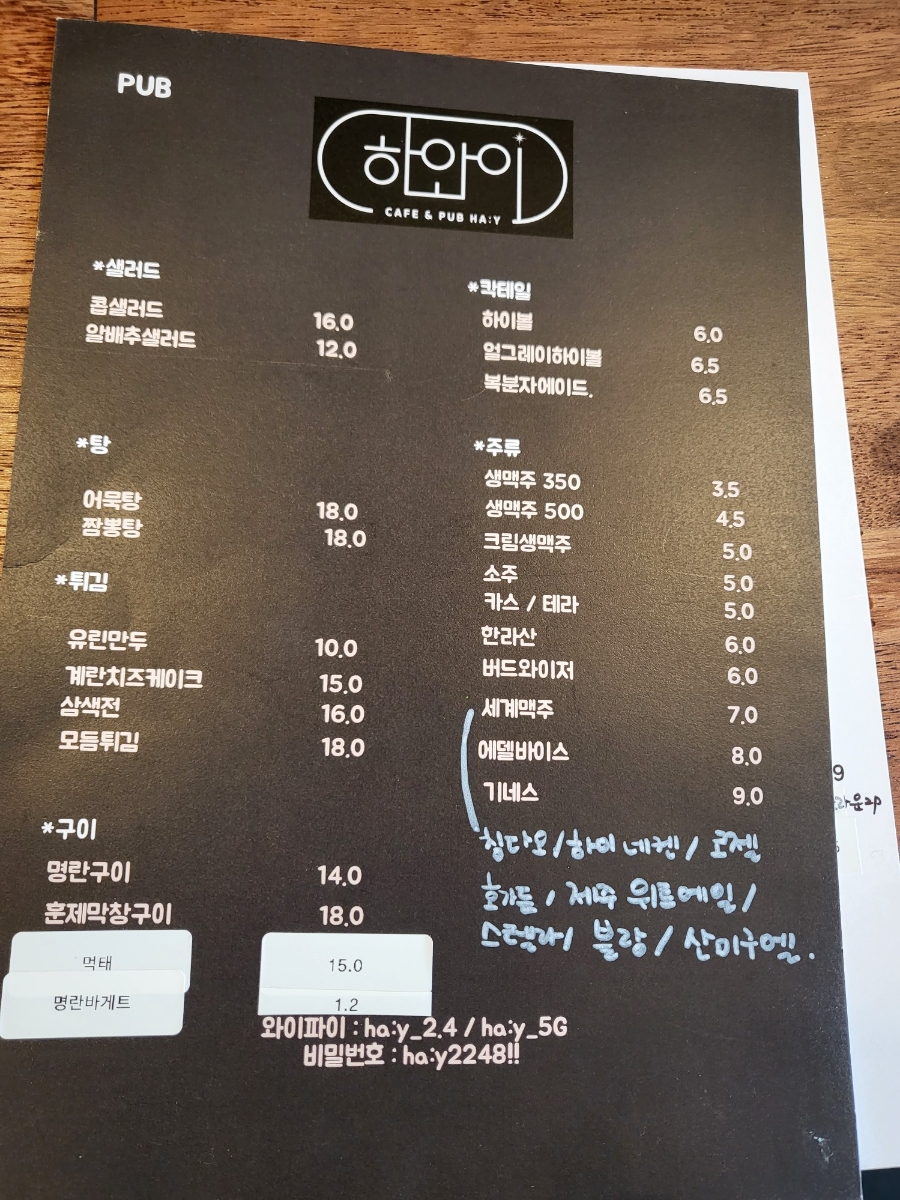 PUB
하와이
CAFE & PUB HA:Y
*샐러드
콥샐러드 16.0
알배추샐러드 12.0
*탕
어묵탕 18.0
짬뽕탕 18.0
*튀김
유린만두 10.0
계란치즈케이크 15.0
삼색전 16.0
모듬튀김 18.0
*구이
명란구이 14.0
훈제막창구이 18.0
먹태 15.0
명란바게트 1.2
*칵테일
하이볼 6.0
얼그레이하이볼 6.5
복분자에이드. 6.5
*주류
생맥주 350 3.5
생맥주 500 4.5
크림생맥주 5.0
소주 5.0
카스 / 테라 5.0
한라산 6.0
버드와이저 6.0
세계맥주 7.0
에델바이스 8.0
기네스 9.0
칭다오/하이네켄/ 코젤
호가든 / 제주 위트에일 /
스텔라/ 블랑 / 산미구엘.
와이파이 : ha:y_2.4 / ha:y_5G
비밀번호 : ha:y2248!!
9